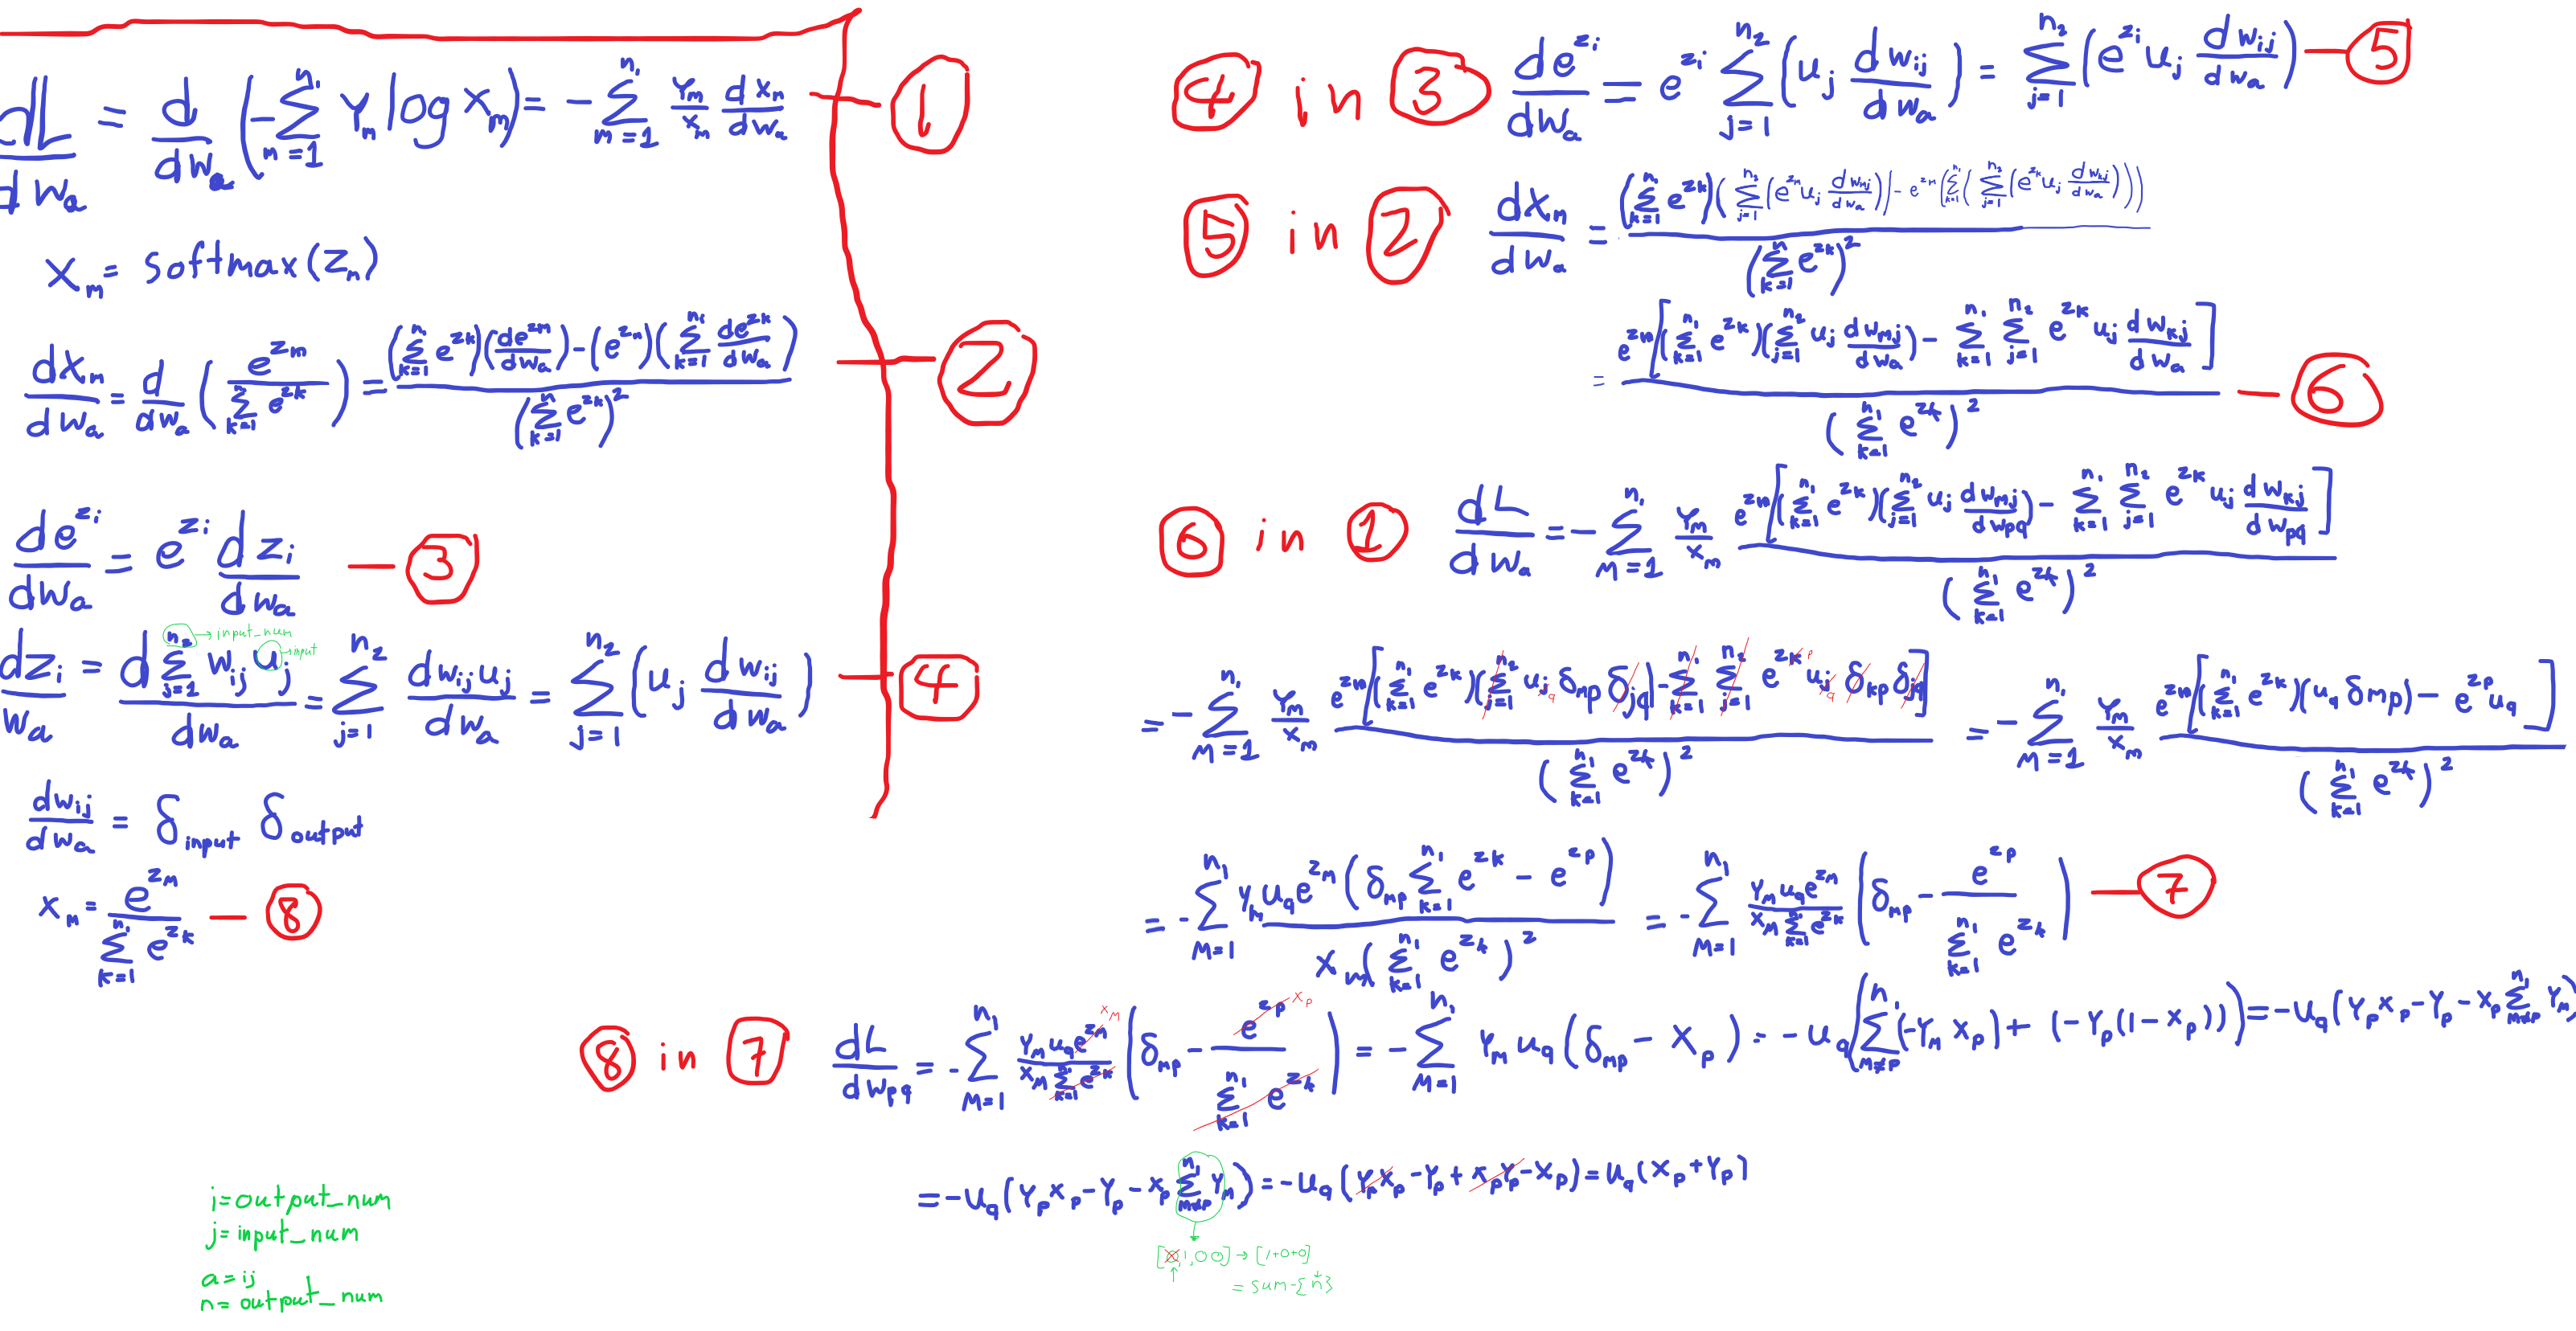 dL/dw_a = d/dw_a (-∑_{m=1}^{n_1} Y_m log X_m) = -∑_{m=1}^{n_1} Y_m/X_m dX_m/dw_a — ①
X_m = softmax(z_m)
dX_m/dw_a = d/dw_a (e^{z_m} / ∑_{k=1}^{n} e^{z_k}) = ((∑_{k=1}^{n_1} e^{z_k})(de^{z_m}/dw_a) - (e^{z_m})(∑_{k=1}^{n_1} de^{z_k}/dw_a)) / (∑_{k=1}^{n} e^{z_k})^2 — ②
de^{z_i}/dw_a = e^{z_i} dz_i/dw_a — ③
n_2 → input_num
u - input
dz_i/w_a = d∑_{j=1}^{n_2} w_{ij} u_j / dw_a = ∑_{j=1}^{n_2} dw_{ij}u_j/dw_a = ∑_{j=1}^{n_2} (u_j dw_{ij}/dw_a) — ④
dw_{ij}/dw_a = δ_{input} δ_{output}
X_m = e^{z_m} / ∑_{k=1}^{n_1} e^{z_k} — ⑧
④ in ③ de^{z_i}/dw_a = e^{z_i} ∑_{j=1}^{n_2} (u_j dw_{ij}/dw_a) = ∑_{j=1}^{n_2} (e^{z_i} u_j dw_{ij}/dw_a) — ⑤
⑤ in ② dX_m/dw_a = ((∑_{k=1}^{n_1} e^{z_k})(∑_{j=1}^{n_2} (e^{z_m} u_j dw_{mj}/dw_a)) - e^{z_m}(∑_{k=1}^{n_1} (∑_{j=1}^{n_2} (e^{z_k} u_j dw_{kj}/dw_a)))) / (∑_{k=1}^{n} e^{z_k})^2
= e^{z_m}[(∑_{k=1}^{n_1} e^{z_k})(∑_{j=1}^{n_2} u_j dw_{mj}/dw_a) - ∑_{k=1}^{n_1} ∑_{j=1}^{n_2} e^{z_k} u_j dw_{kj}/dw_a] / (∑_{k=1}^{n_1} e^{z_k})^2 — ⑥
⑥ in ① dL/dw_a = -∑_{m=1}^{n_1} Y_m/X_m e^{z_m}[(∑_{k=1}^{n_1} e^{z_k})(∑_{j=1}^{n_2} u_j dw_{mj}/dw_{pq}) - ∑_{k=1}^{n_1} ∑_{j=1}^{n_2} e^{z_k} u_j dw_{kj}/dw_{pq}] / (∑_{k=1}^{n_1} e^{z_k})^2
= -∑_{m=1}^{n_1} Y_m/X_m e^{z_m}[(∑_{k=1}^{n_1} e^{z_k})(∑_{j=1}^{n_2} u_j q δ_{mp} δ_{jq}) - ∑_{k=1}^{n_1} ∑_{j=1}^{n_2} e^{z_k} p u_j q δ_{kp} δ_{jq}] / (∑_{k=1}^{n_1} e^{z_k})^2 = -∑_{m=1}^{n_1} Y_m/X_m e^{z_m}[(∑_{k=1}^{n_1} e^{z_k})(u_q δ_{mp}) - e^{z_p} u_q] / (∑_{k=1}^{n_1} e^{z_k})^2
= -∑_{m=1}^{n_1} Y_m u_q e^{z_m}(δ_{mp} ∑_{k=1}^{n_1} e^{z_k} - e^{z_p}) / X_m(∑_{k=1}^{n_1} e^{z_k})^2 = -∑_{m=1}^{n_1} Y_m u_q e^{z_m} / X_m ∑_{k=1}^{n_1} e^{z_k} (δ_{mp} - e^{z_p} / ∑_{k=1}^{n_1} e^{z_k}) — ⑦
⑧ in ⑦ dL/dw_{pq} = -∑_{m=1}^{n_1} Y_m u_q e^{z_m} X_m / X_m ∑_{k=1}^{n_1} e^{z_k} (δ_{mp} - e^{z_p} X_p / ∑_{k=1}^{n_1} e^{z_k}) = -∑_{m=1}^{n_1} Y_m u_q (δ_{mp} - X_p) = -u_q(∑_{m≠p}^{n_1} (-Y_m X_p) + (-Y_p(1-X_p))) = -u_q(Y_p X_p - Y_p - X_p ∑_{m≠p}^{n_1} Y_m)
= -u_q(Y_p X_p - Y_p - X_p ∑_{m≠p}^{n_1} Y_m) = -u_q(Y_p X_p - Y_p + X_p Y_p - X_p) = u_q(X_p + Y_p)
[0,1,00] → [1+0+0]
= sum-{n}
i = output_num
j = input_num
a = ij
n = output_num